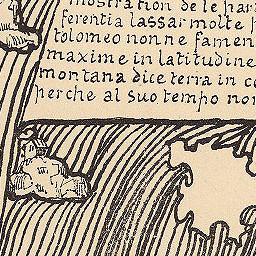 mostration de le par
ferentia lassar molte
tolomeo non ne famen
maxime in latitudine
montana dice terra in co
perche al suo tempo non